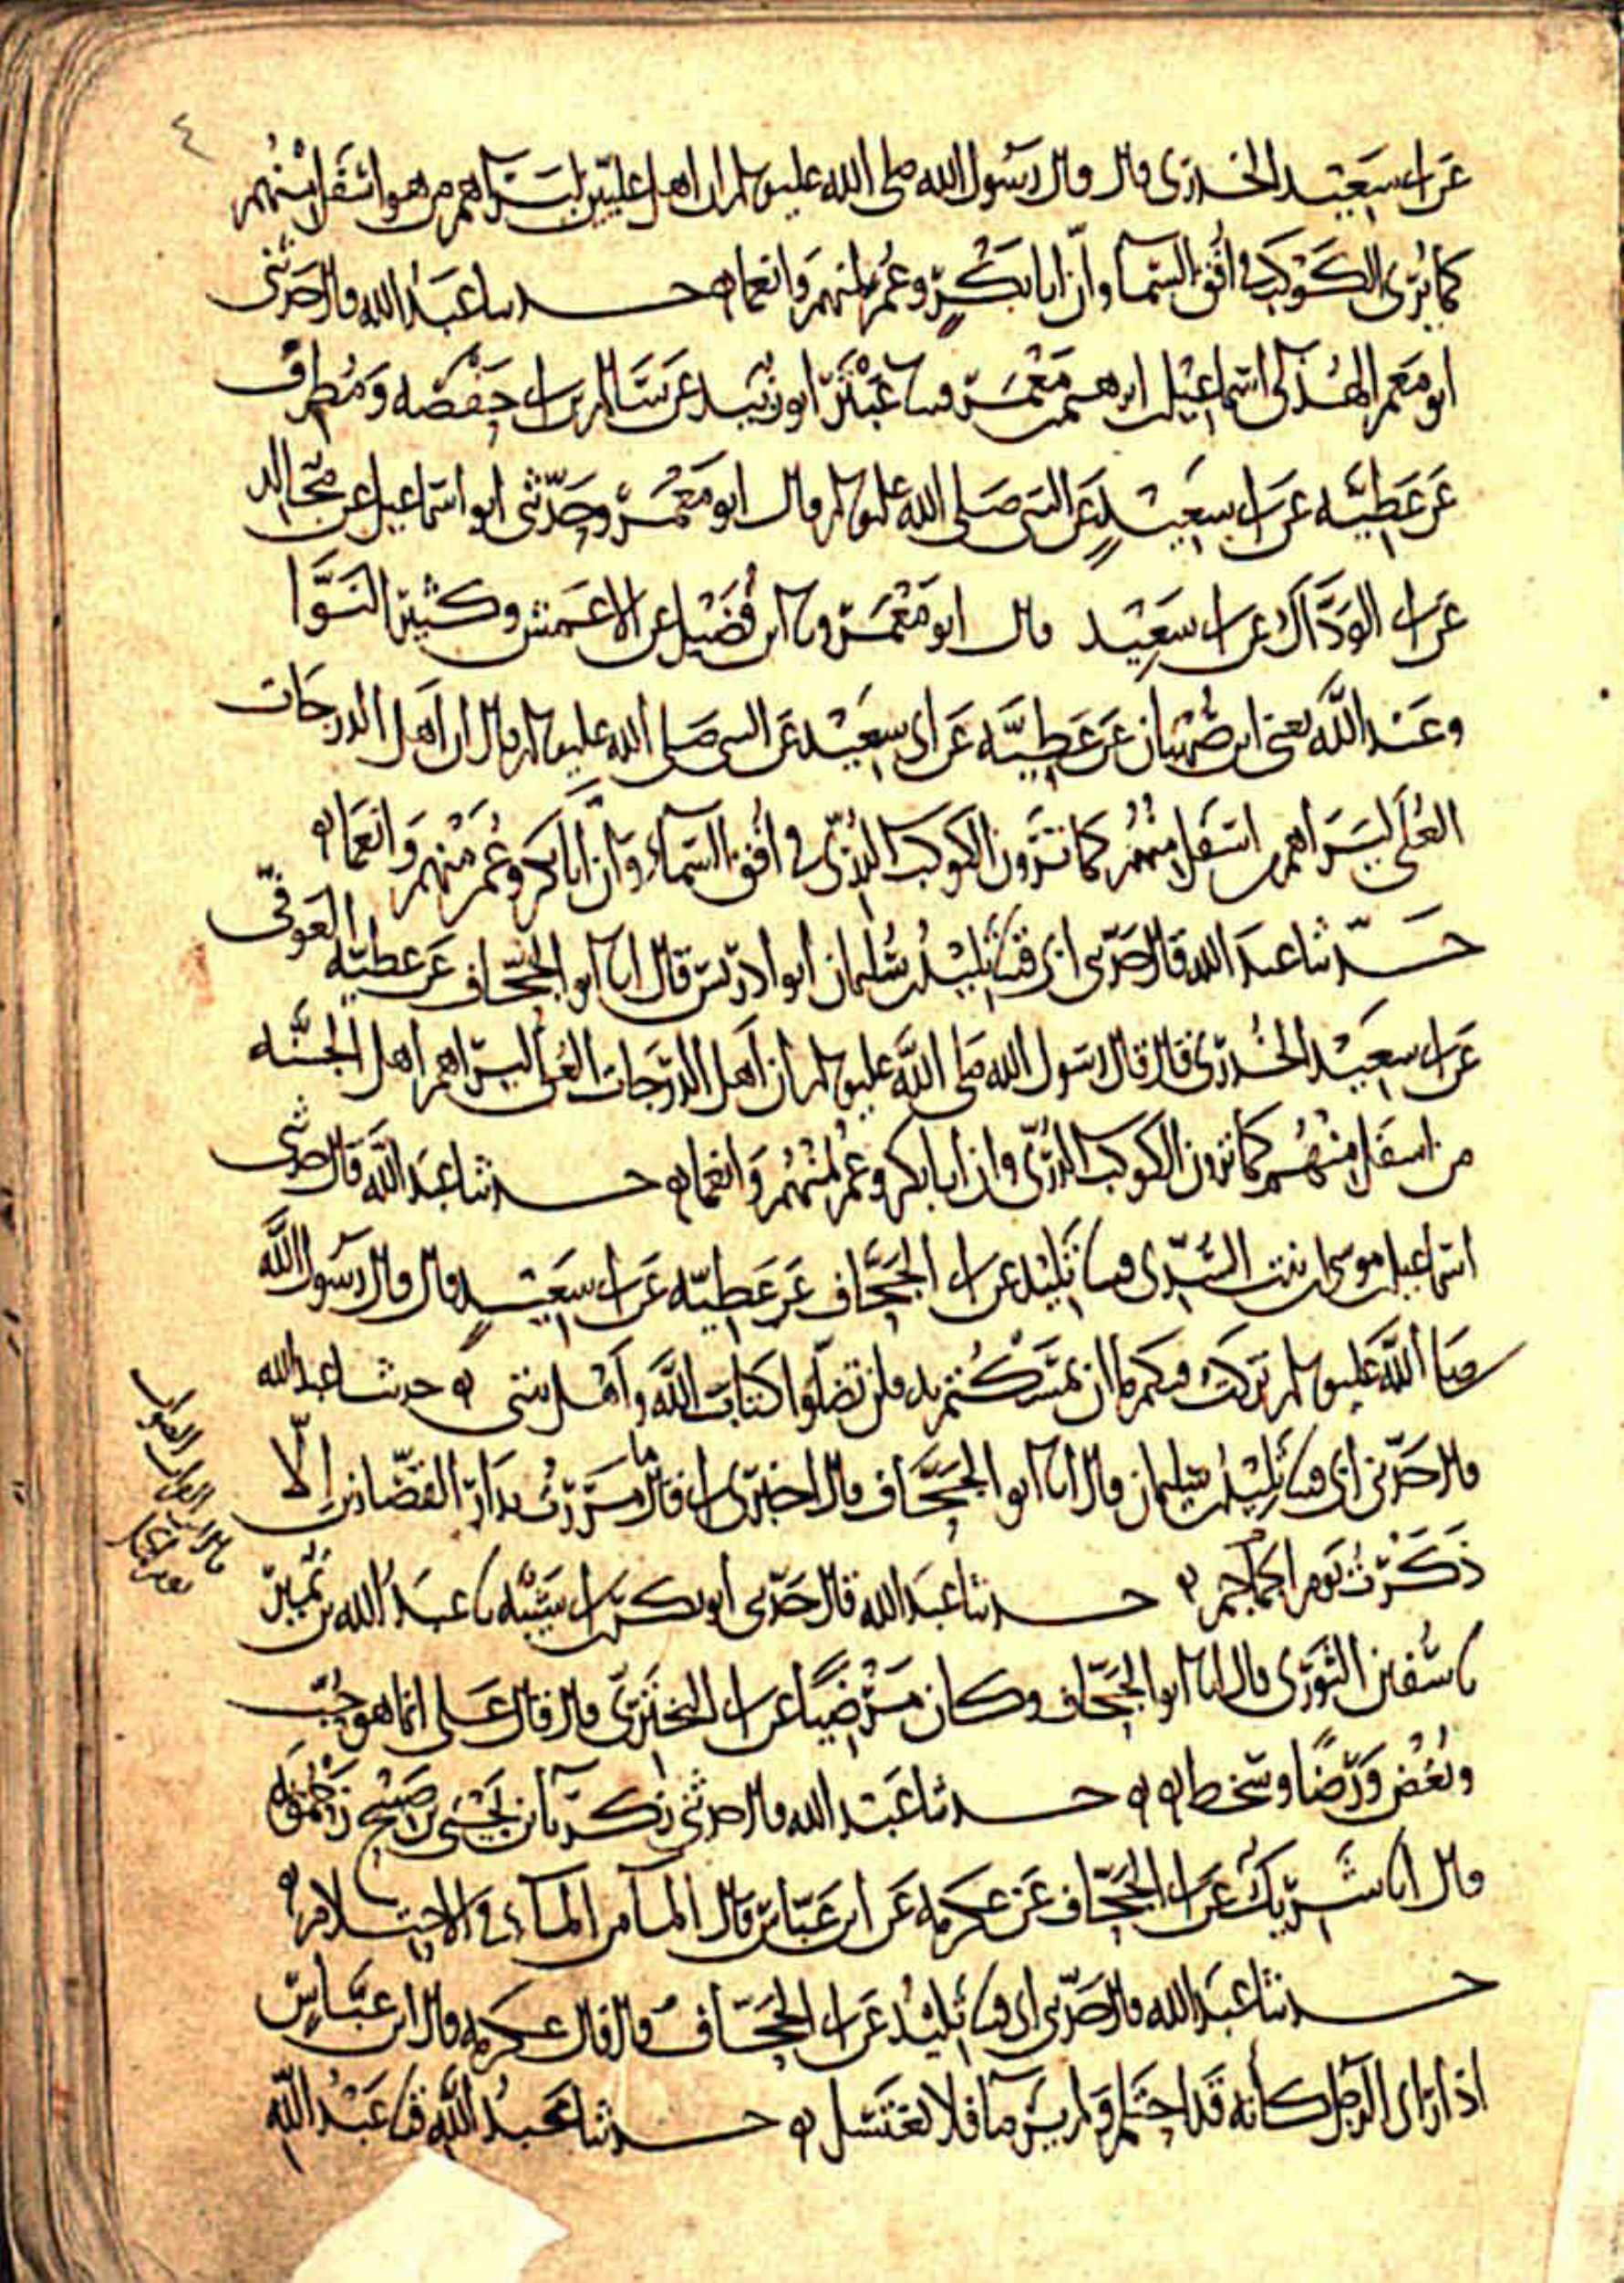 ٤
عن ابي سعيد الخدري قال قال رسول الله صلى الله عليه وسلم ان اهل عليين ليراهم من هو اسفل منهم
كما يرى الكوكب في افق السما وان ابا بكر وعمر لمنهم وانعما ه حدثنا عبد الله قال حدثني
ابو معمر الهذلي اسماعيل بن ابرهيم بن معمر قثنا عبثر ابو زبيد عن سالم بن ابي حفصه ومطرف
عن عطيه عن ابي سعيد عن النبي صلى الله عليه وسلم قال ابو معمر وحدثني ابو اسماعيل عن مجالد
عن ابي الوداك عن ابي سعيد قال ابو معمر ونا ابن فضيل عن الاعمش وكثير النوا
وعبد الله يعني ابن صهبان عن عطيه عن ابي سعيد عن النبي صلى الله عليه وسلم قال ان اهل الدرجات
العلى ليراهم من اسفل منهم كما ترون الكوكب الدري في افق السماء وان ابا بكر وعمر منهم وانعما ه
حدثنا عبد الله قال حدثني ابي قثنا تليد بن سليمان ابو ادريس قال انا ابو الجحاف عن عطيه العوفي
عن ابي سعيد الخدري قال قال رسول الله صلى الله عليه وسلم ان اهل الدرجات العلى ليراهم اهل الجنه
من اسفل منهم كما ترون الكوكب الدري وان ابا بكر وعمر لمنهم وانعما ه حدثنا عبد الله قال حدثني
اسماعيل بن موسى ابن بنت السدي قثنا تليد عن ابي الجحاف عن عطيه عن ابي سعيد قال قال رسول الله
صلى الله عليه وسلم تركت فيكم ما ان تمسكتم به فلن تضلوا كتاب الله واهل بيتي ه حدثنا عبد الله
قال حدثني ابي قثنا تليد بن سليمان قال انا ابو الجحاف قال اخبرني ابي قال ما مررت بدار القصارين الا
ذكرت يوم الجماجم ه حدثنا عبد الله قال حدثني ابو بكر بن ابي شيبه نا عبد الله بن نمير
نا سفين الثوري قال انا ابو الجحاف وكان مرضيا عن ابي البختري قال قال علي انما هو حب
وبغض ورضا وسخط ه ه حدثنا عبد الله قال حدثني زكريا بن يحيى بن صبيح زحمويه
قال انا شريك عن ابي الجحاف عن عكرمه عن ابن عباس قال الما من الماء في الاحتلام ه
حدثنا عبد الله قال حدثني ابي قثنا تليد عن ابي الجحاف قال قال عكرمه قال ابن عباس
اذا راى الرجل كانه قد احتلم ولم ير ما فلا يغتسل ه حدثنا عبد الله قثنا عبد الله